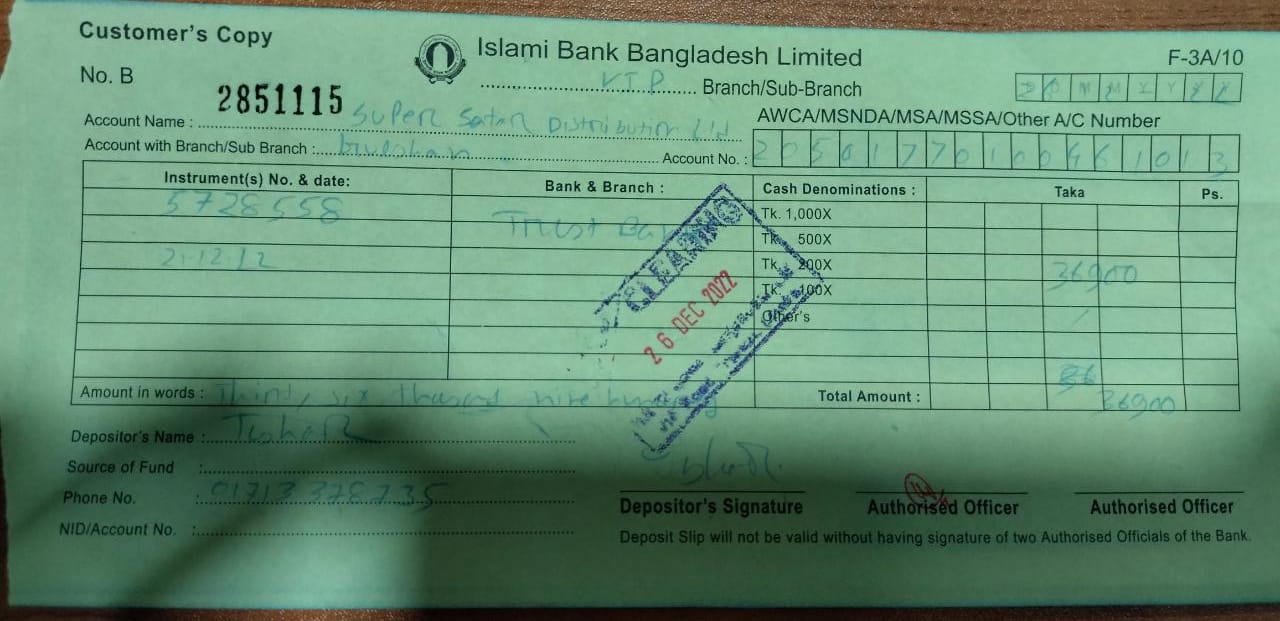 Customer's Copy
Islami Bank Bangladesh Limited
F-3A/10
No. B 2851115
V.I.P Branch/Sub-Branch
Account Name : Super Distribution Ltd
AWCA/MSNDA/MSA/MSSA/Other A/C Number
Account with Branch/Sub Branch : Gulshan
Account No. :
Instrument(s) No. & date: Bank & Branch : Cash Denominations : Taka Ps.
5728558 Trust Tk. 1,000X
Tk. 500X
2.12.12 Tk. 200X 36900
Tk. 100X
Other's
CLEARING
26 DEC 2022
36
Amount in words : Thirty six thousand nine hundred Total Amount : 36900
Depositor's Name : Tushar
Source of Fund :
Phone No. : 01713 378735
NID/Account No. :
Depositor's Signature Authorised Officer Authorised Officer
Deposit Slip will not be valid without having signature of two Authorised Officials of the Bank.